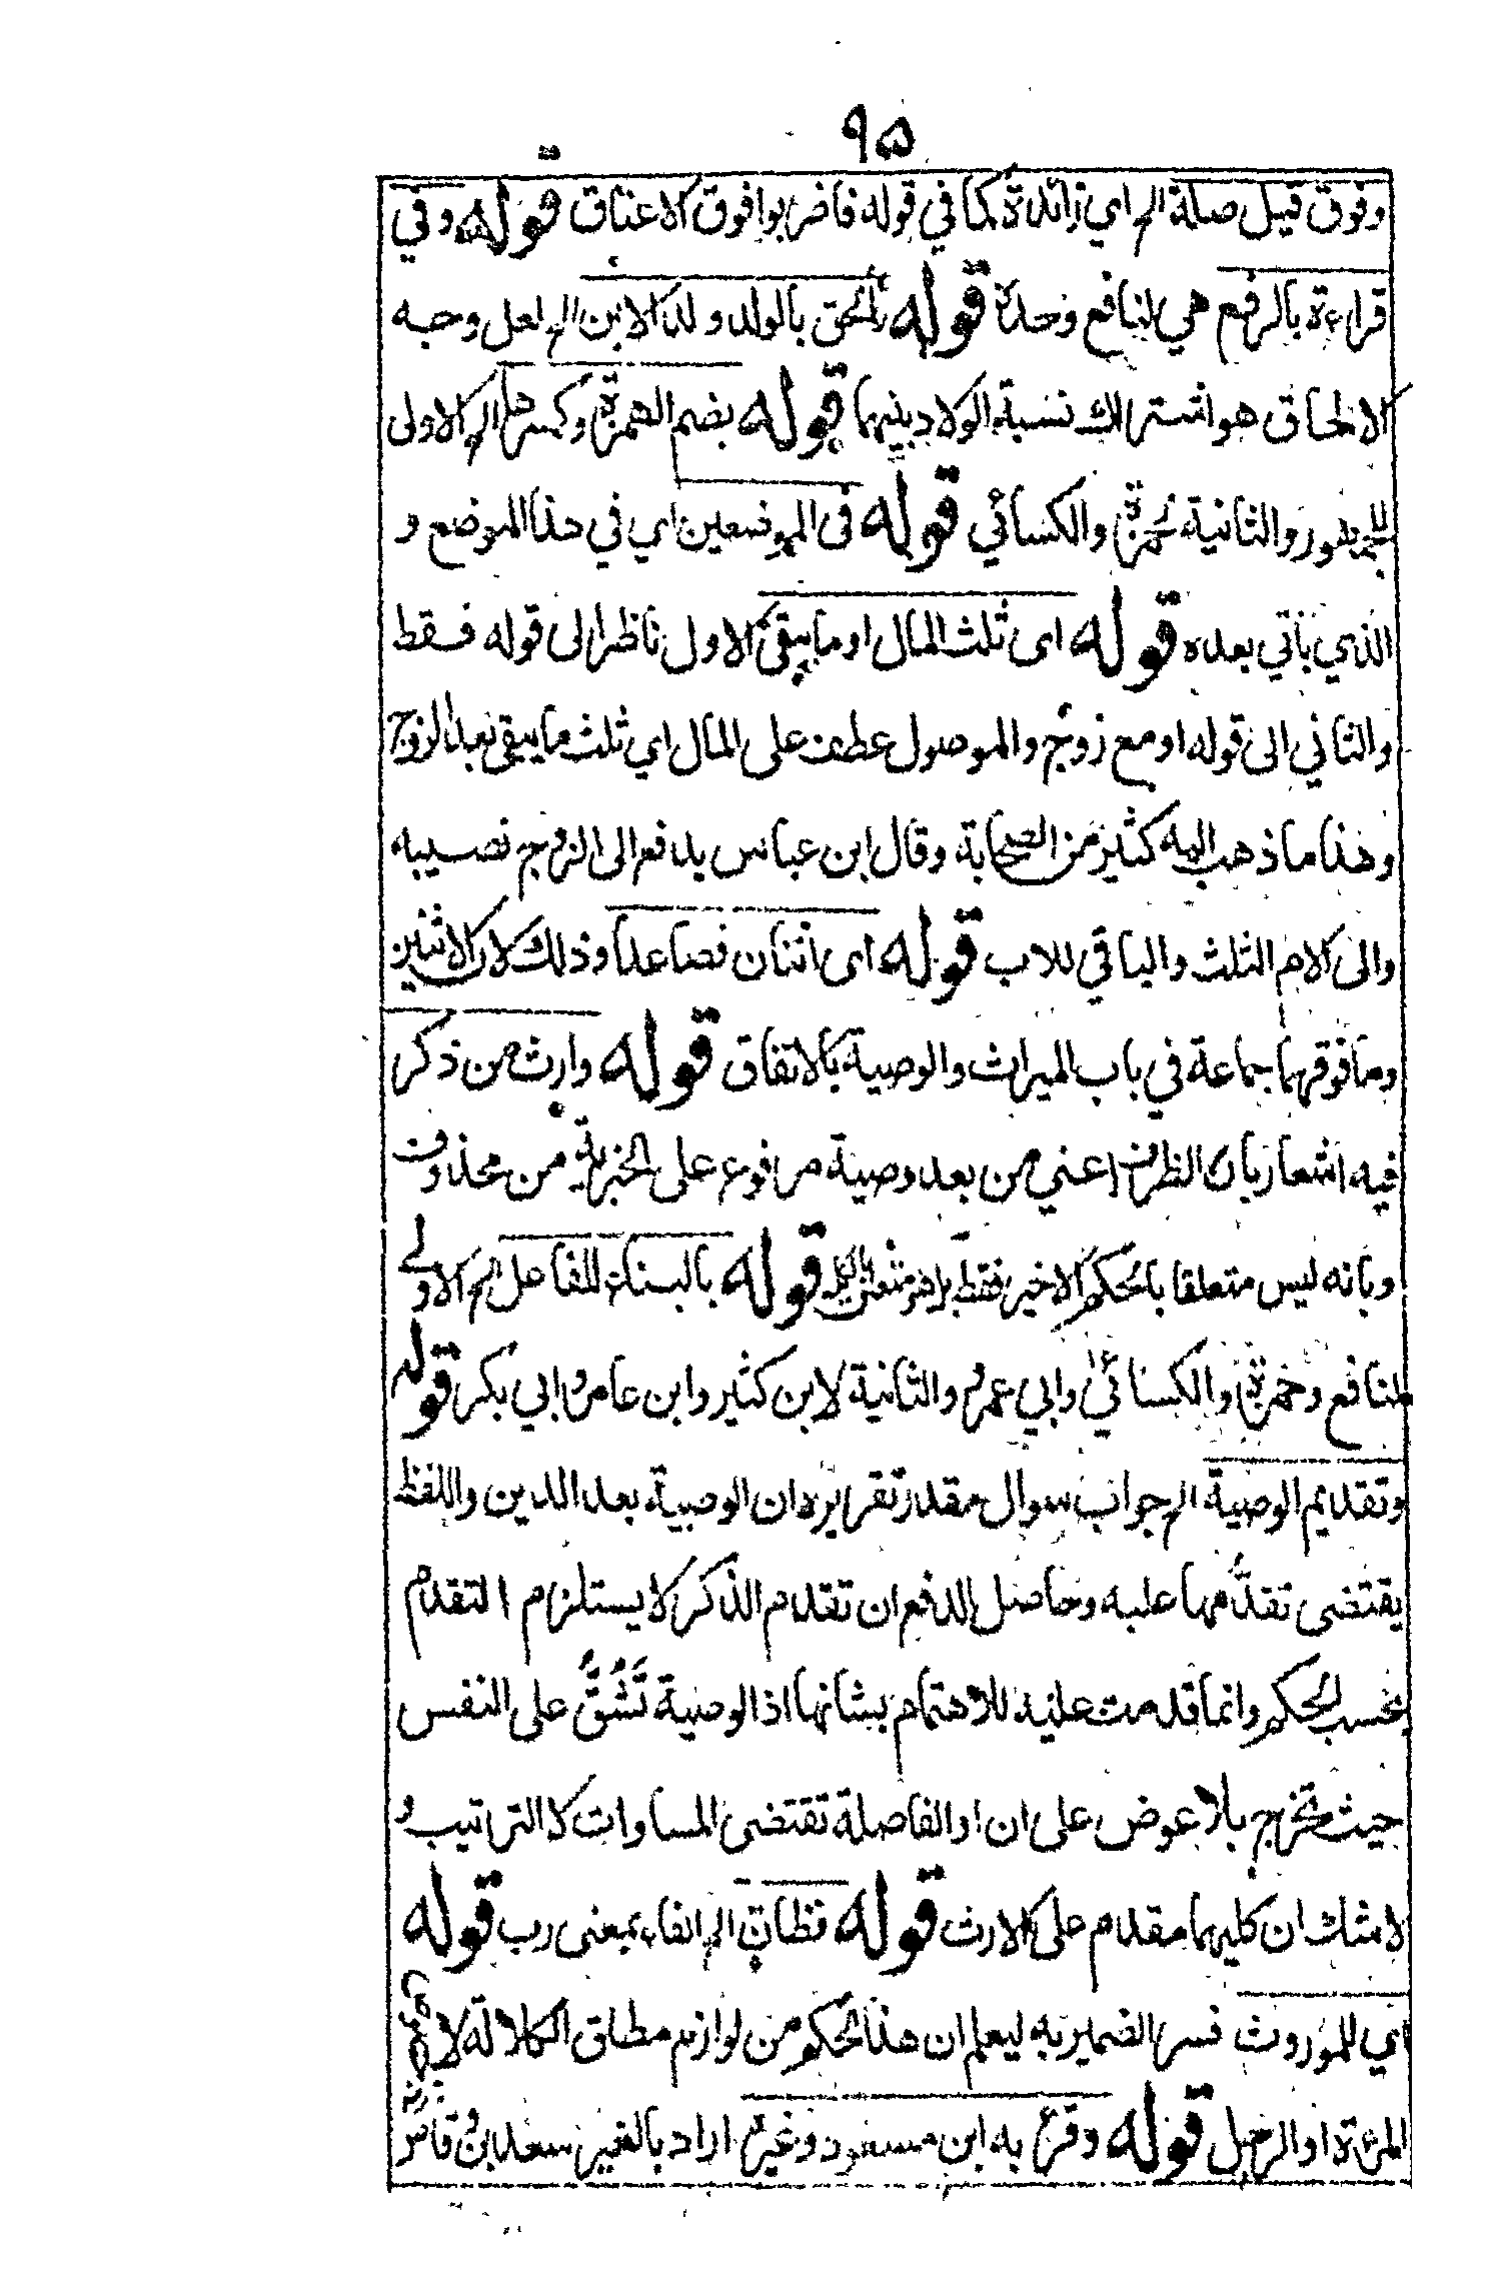 ٩٥
وفوق قيل صلة الخ اي زائدة كما في قوله فاضربوا فوق الاعناق قوله وفي
قراءة بالرفع هي لنافع وحده قوله والحق بالولد ولد الابن الخ لعل وجه
الالحاق هو اشتراك نسبة الولاد بينهما قوله بضم الهمزة وكسرها الخ الاولى
للجمهور والثانية لحمزة والكسائي قوله فى الموضعين اي في هذا الموضع و
الذي يأتي بعده قوله اى ثلث المال او ما يبقى الاول ناظر الى قوله فقط
والثاني الى قوله او مع زوج والموصول عطف على المال اي ثلث ما يبقى بعد الزوج
وهذا ما ذهب اليه كثير من الصحابة وقال ابن عباس يدفع الى الزوج نصيبه
والى الام الثلث والباقي للاب قوله اى اثنان فصاعدا وذلك لان الاثنين
وما فوقهما جماعة في باب الميراث والوصية بالاتفاق قوله وارث من ذكر
فيه اشعار بان الظرف اعني من بعد وصية مرفوع على الخبرية من محذوف
وبانه ليس متعلقا بالحكم الاخير فقط بل هو متعلق بالكل قوله بالبناء للفاعل الخ الاولى
لنافع وحمزة والكسائي وابي عمرو والثانية لابن كثير وابن عامر وابي بكر قوله
وتقديم الوصية الخ جواب سوال مقدر تقريره ان الوصية بعد الدين واللفظ
يقتضى تقدّمها عليه وحاصل الدفع ان تقدم الذكر لا يستلزم التقدم
بحسب الحكم وانما قدمت عليه للاهتمام بشانها اذ الوصية تَشُقُّ على النفس
حيث تخرج بلا عوض على ان او الفاصلة تقتضى المساوات لا الترتيب و
لا شك ان كليهما مقدم على الارث قوله فظاتٍ الخ الفاء بمعنى رب قوله
اي للموروث فسر الضمير به ليعلم ان هذا الحكم من لوازم مطلق الكلالة لا
المرءة او الرجل قوله وقرء به ابن مسعود وغيره اراد بالغير سعد بن وقاص